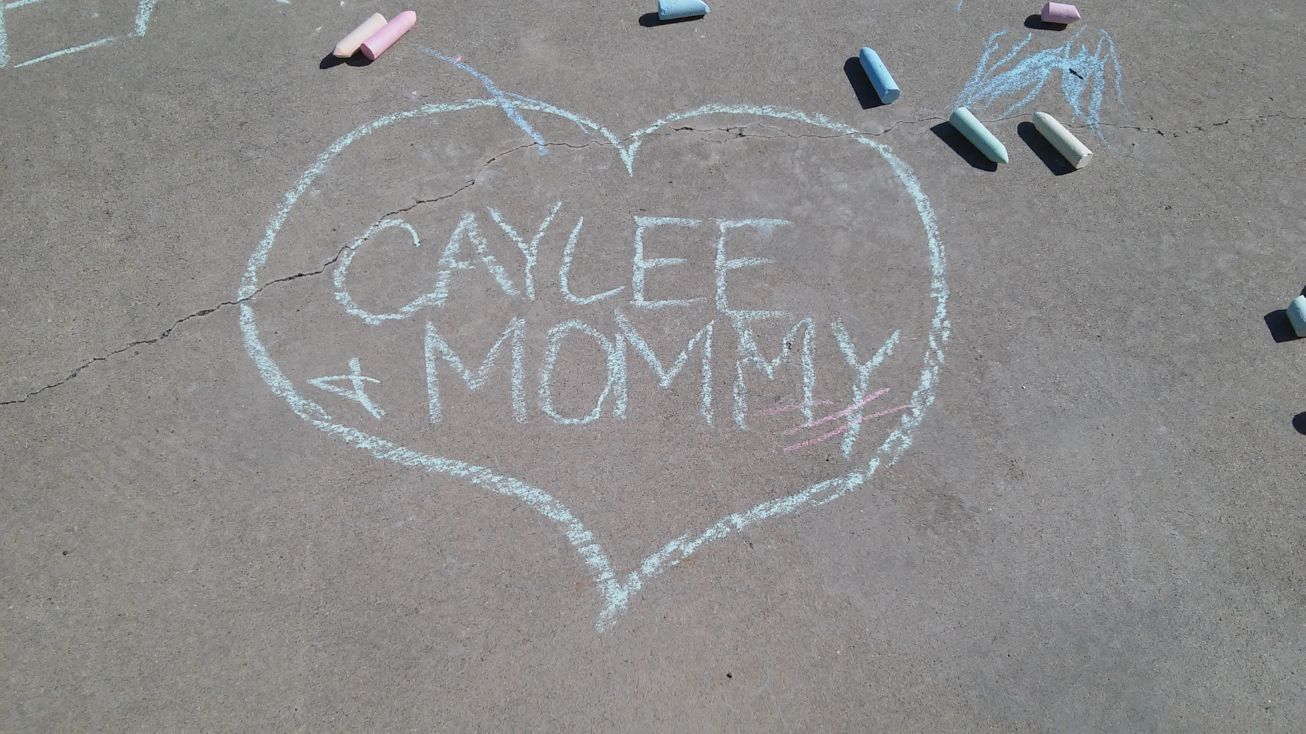 CAYLEE
& MOMMY